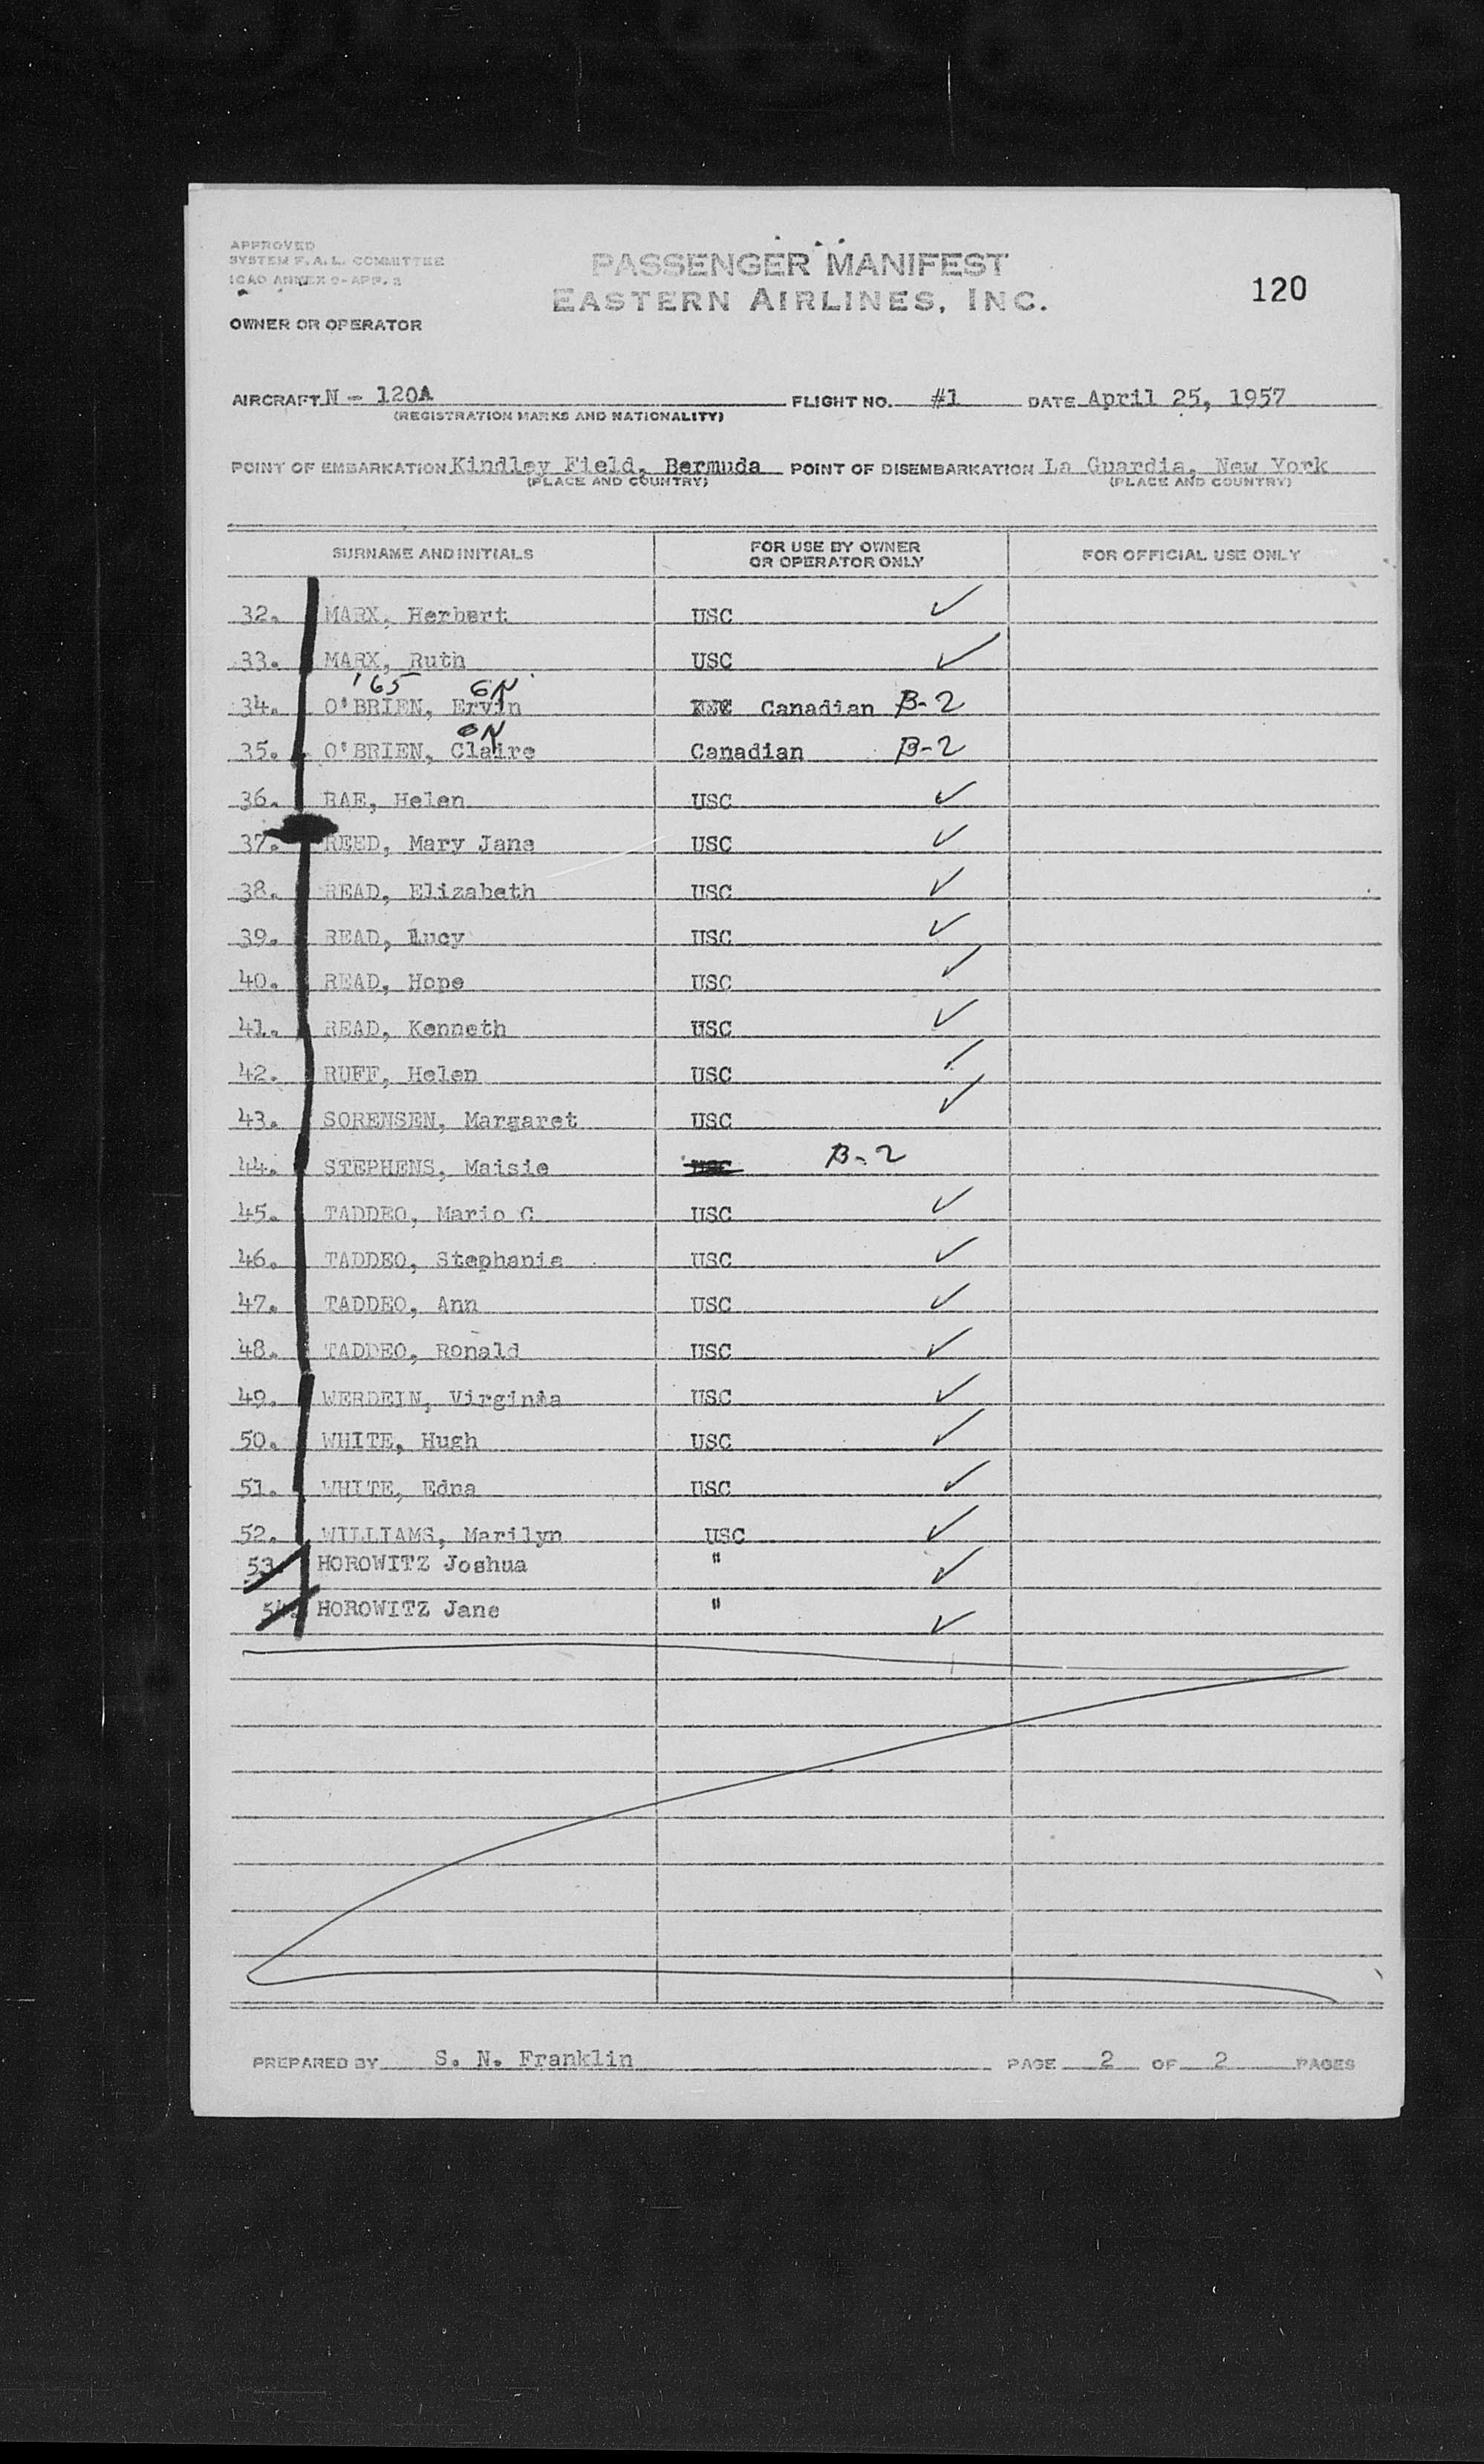 APPROVED
SYSTEM F.A.L. COMMITTEE
ICAO ANNEX 9-APP. 2
PASSENGER MANIFEST
EASTERN AIRLINES, INC.
120
OWNER OR OPERATOR
AIRCRAFT N - 120A FLIGHT NO. #1 DATE April 25, 1957
(REGISTRATION MARKS AND NATIONALITY)
POINT OF EMBARKATION Kindley Field, Bermuda POINT OF DISEMBARKATION La Guardia, New York
(PLACE AND COUNTRY) (PLACE AND COUNTRY)
SURNAME AND INITIALS FOR USE BY OWNER OR OPERATOR ONLY FOR OFFICIAL USE ONLY
32. MARX, Herbert USC ✓
33. MARX, Ruth USC ✓
'65 6N
34. O'BRIEN, Ervin Canadian B-2
6N
35. O'BRIEN, Claire Canadian B-2
36. RAE, Helen USC ✓
37. REED, Mary Jane USC ✓
38. READ, Elizabeth USC ✓
39. READ, Lucy USC ✓
40. READ, Hope USC ✓
41. READ, Kenneth USC ✓
42. RUFF, Helen USC ✓
43. SORENSEN, Margaret USC ✓
44. STEPHENS, Maisie B-2
45. TADDEO, Mario C USC ✓
46. TADDEO, Stephanie USC ✓
47. TADDEO, Ann USC ✓
48. TADDEO, Ronald USC ✓
49. WERDEIN, Virginia USC ✓
50. WHITE, Hugh USC ✓
51. WHITE, Edna USC ✓
52. WILLIAMS, Marilyn USC ✓
53 HOROWITZ Joshua " ✓
54. HOROWITZ Jane " ✓
PREPARED BY S. N. Franklin PAGE 2 OF 2 PAGES